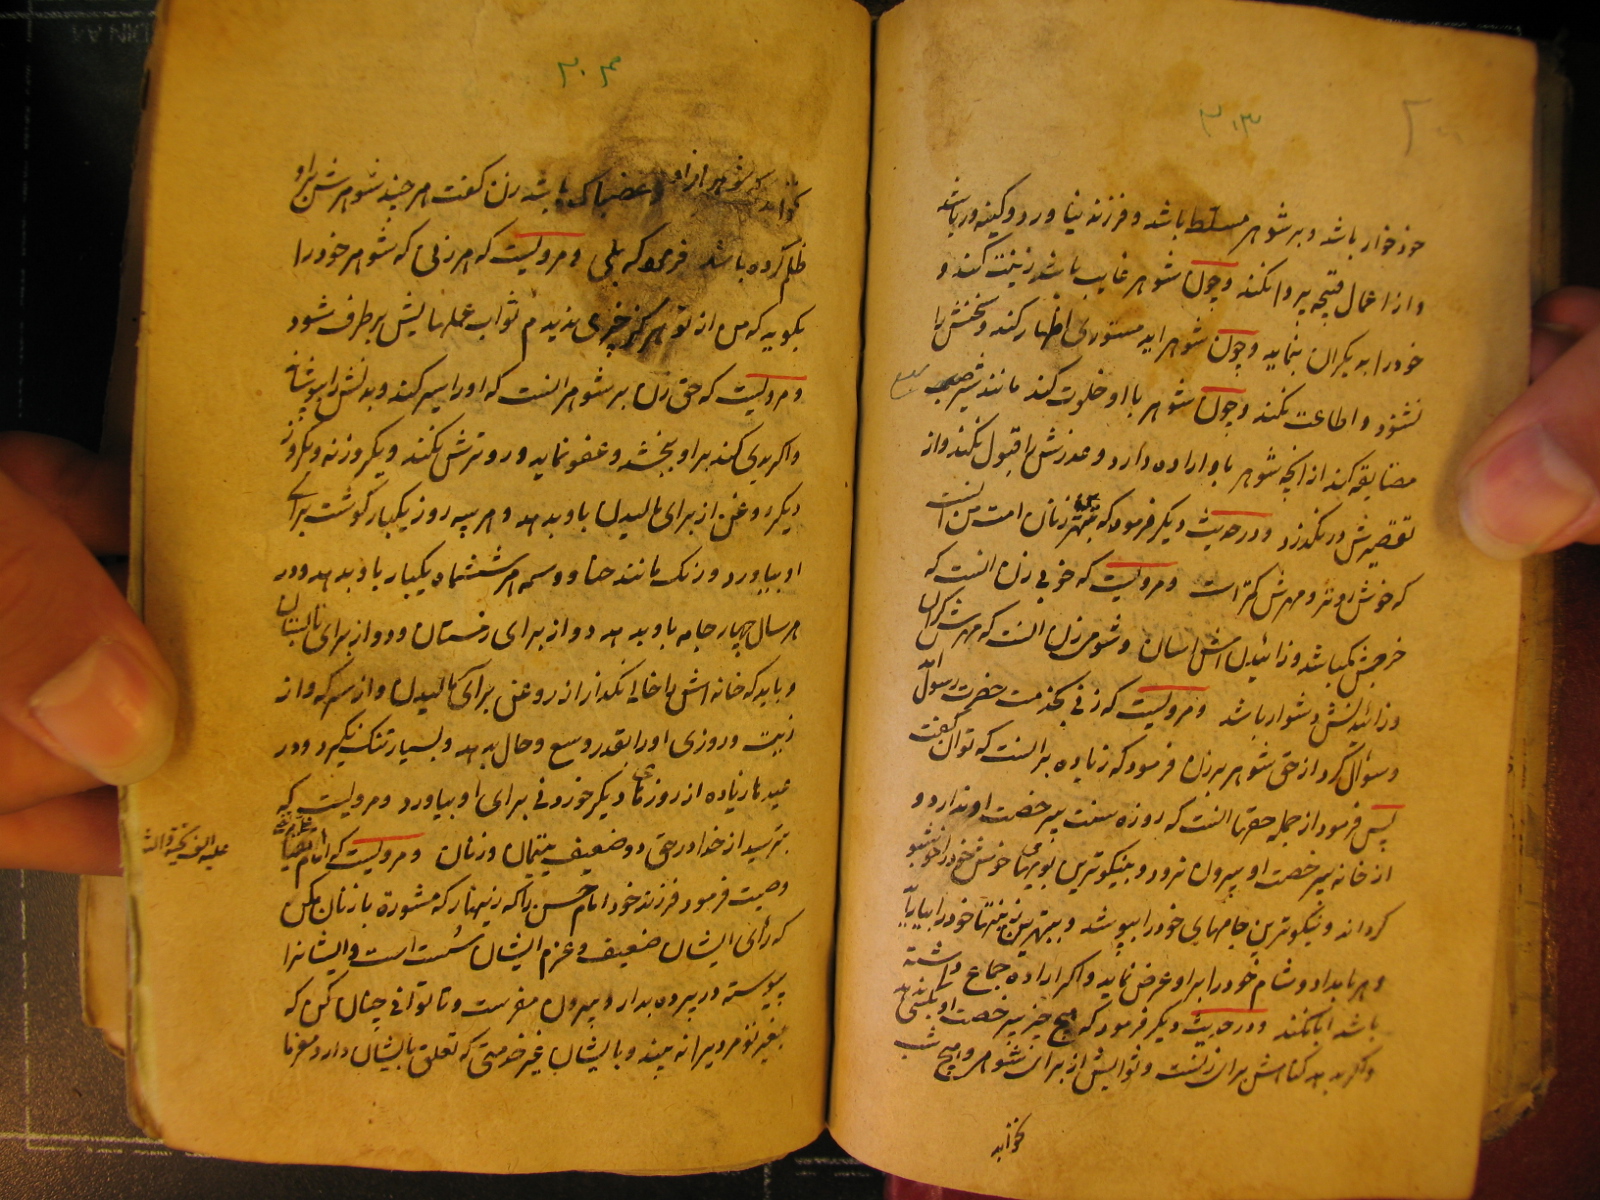 ۳۰۳
خود خوار باشد و بر شوهر مسلط باشد و فرزند نیاورد و کینه ور باشد
و از اعمال قبیحه پروا نکند و چون شوهر غایب باشد زینت کند و
خود را به دیگران بنماید و چون شوهر آید مستوری اظهار کند و سخنش را
نشنود و اطاعت نکند و چون شوهر با او خلوت کند مانند شتر صعب
مضایقه کند از آنچه شوهر باو اراده دارد و عذرش را قبول نکند و از
تقصیرش در نگذرد و در حدیث دیگر فرمود که بهترین زنان امت من آنست
که خوش روتر و مهرش کمتر است و مرویست که خوبی زن آنست که
خرجش کم باشد و زائیدنش آسان و شومی زن آنست که مهرش گران
و زائیدنش دشوار باشد و مرویست که زنی بخدمت حضرت رسول الله
و سؤال کرد از حق شوهر بر زن فرمود که زیاده بر آنست که توان گفت
پس فرمود از جمله حقها آنست که روزه سنت بیرخصت او ندارد و
از خانه بیرخصت او بیرون نرود و بنیکوترین بویهای خوش خود را خوشبو
گرداند و نیکوترین جامهای خود را بپوشد و ببهترین زینتها خود را بیاراید
و هر بامداد و شام خود را بر او عرض نماید و اگر اراده جماع داشته
باشد ابا نکند و در حدیث دیگر فرمود که هیچ چیز بیرخصت او بکسی ندهد
و اگر بدهد گناهش برای زنست و ثوابش از برای شوهر و هیچ شب
نخوابد
۳۰۴
نخوابد که شوهر از او غضبناک باشد زن گفت هر چند شوهرش بر او
ظلم کرده باشد فرمود که بلی و مرویست که هر زنی که شوهر خود را
بگوید که من از تو هرگز خیری ندیدم ثواب عملهایش بر طرف شود
و مرویست که حق زن بر شوهر آنست که او را سیر کند و بدنش را بپوشاند
و اگر بدی کند بر او بخشد و عفو نماید و رو ترش نکند و یکروز نه و یکروز
دیگر روغن از برای مالیدن باو بدهد و هر سه روز یکبار گوشت برای
او بیاورد و رنگ مانند حنا و وسمه هر ششماه یکبار باو بدهد و در
هر سال چهار جامه باو بدهد دو از برای زمستان و دو از برای تابستان
و باید که خانه اش را خالی نگذارد از روغن برای مالیدن و از سرکه و از
زیت و روزی او را بقدر وسع و حال بدهد و بسیار تنگ نگیرد و در
عیدها زیاده از روزهای دیگر خوردنی برای او بیاورد و مرویست که
بترسید از خدا در حق دو ضعیف یتیمان و زنان و مرویست که امام
علیه الف التحیة والثنا
وصیت فرمود فرزند خود امام حسن را که زینهار که مشورة با زنان مکن
که رأی ایشان ضعیف و عزم ایشان سُست است و ایشانرا
پیوسته در پرده بدار و بیرون مفرست و تا توانی چنان کن که
بغیر تو مردیرا نه بیند و بایشان غیر خدمتی که تعلق بایشان دارد مفرما